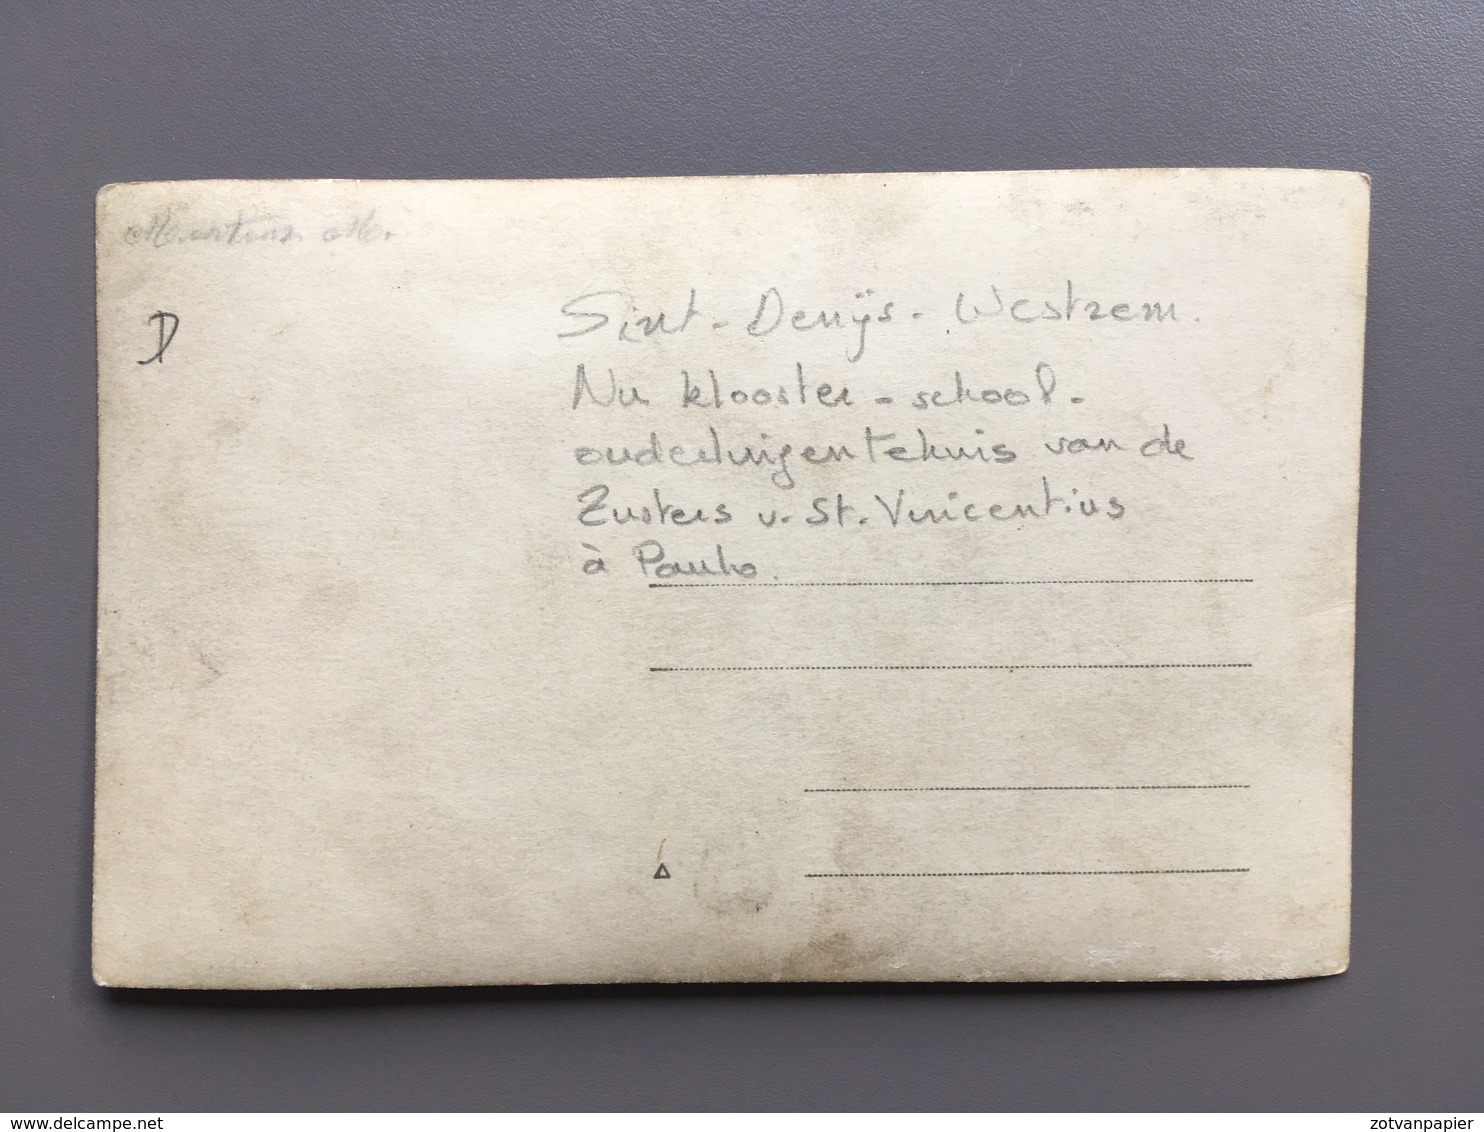 Mertens M.
D
Sint-Denijs-Westrem.
Nu klooster-school-
ouderlingentehuis van de
Zusters v. St. Vincentius
à Paulo.
delcampe.net
zotvanpapier